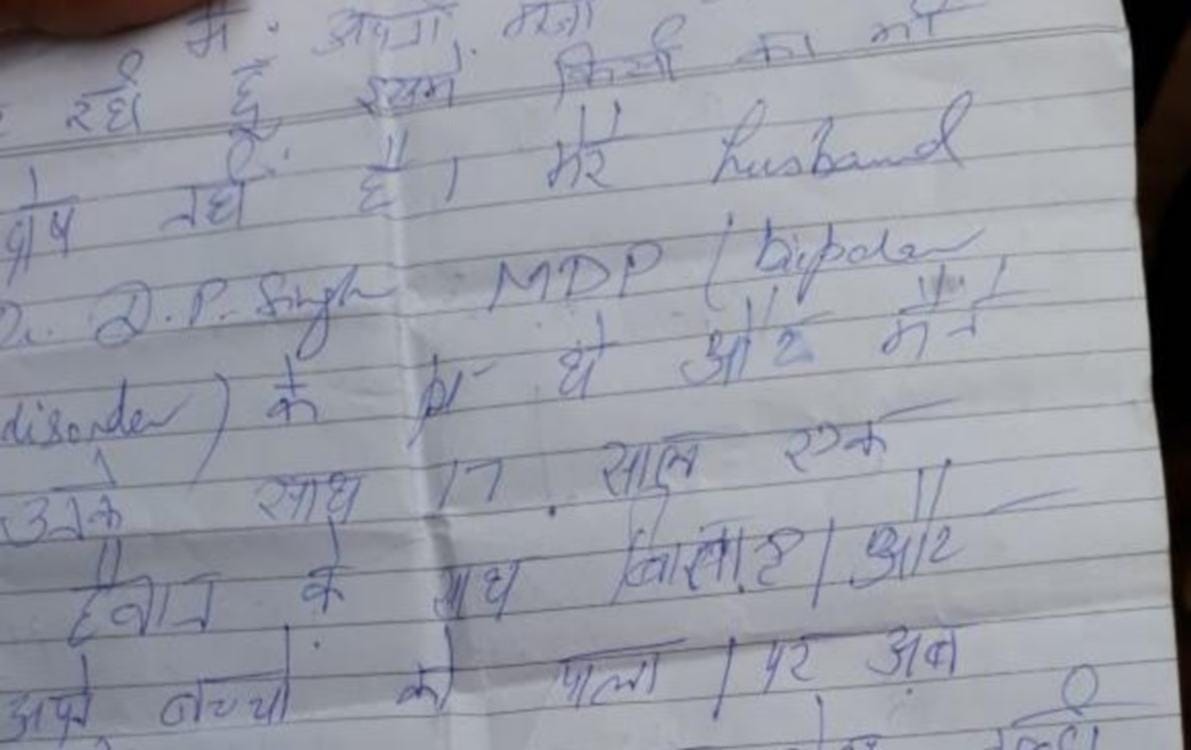 में अपनी मर्जी
रही हूँ इसमें किसी का भी
दोष नहीं है । मेरे husband
Dr. D. P. Singh MDP ( bipolar
disorder ) के pt थे और मैंने
उनके साथ 17 साल एक
हैवान के साथ बिताए है | और
अपने बच्चो को पाला | पर अब